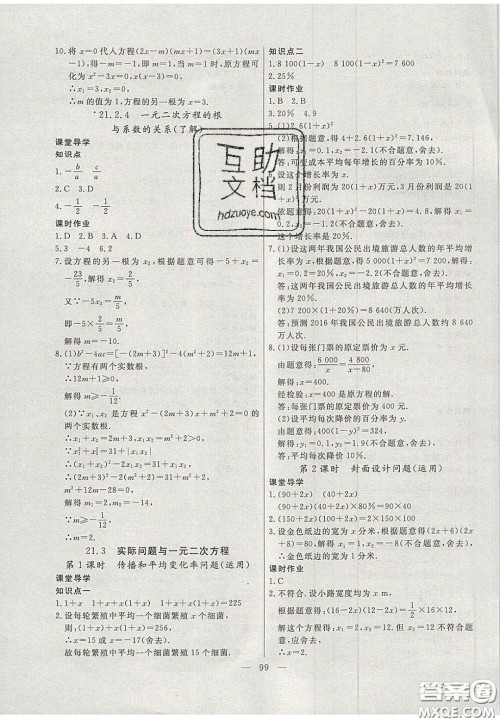 10. 将 x=0 代入方程 (2x-m)(mx+1)=(3x+1)(mx
-1), 得 m=1, 即 m=1, 当 m=1 时, 原方程可
化为 x²-3x=0, x(x-3)=0,
∴x₁=3, x₂=0,
∴m 的值为 1, 方程的另一根为 x=3.
*21.2.4 一元二次方程的根
与系数的关系(了解)
课堂导学
知识点
1. -b/a c/a
2. C 3. D
4. -1/2 -1/2
课时作业
1. D 2. B 3. A 4. D
5. 3 -4 6. 2
7. 设方程的另一根为 x₂, 根据题意可得 -5+x₂=
-23/5, 解得 x₂=2/5,
又∵-5x₂=m/5,
即 -5×2/5=m/5,
解得 m=-10.
8. (1)b²-4ac=[-(2m+3)]²-4(m²+2)=12m+1,
∵方程有两个实数根,
∴12m+1≥0.
解得 m≥-1/12.
(2)∵x₁、x₂ 是方程 x²-(2m+3)x+m²+2=0 的
两个实数根,
∴x₁+x₂=2m+3, x₁x₂=m²+2>0,
∵x₁²+x₂²=31+|x₁x₂|
∴x₁²+x₂²=31+x₁x₂
∴(2m+3)²-2(m²+2)=31+m²+2
m²+12m-28=0
解得 m₁=2, m₂=-14.
又∵m≥-1/12,
∴m=2.
21.3 实际问题与一元二次方程
第1课时 传播和平均变化率问题(运用)
课堂导学
知识点一
1. 1+x x(1+x) 1+x+x(1+x)=225
2. 设每轮繁殖中平均一个细菌繁殖 x 个细菌,
∴x=15 或 x=-17(舍去).
故每轮繁殖中平均一个细菌繁殖 15 个细菌.
知识点二
1. 8 100(1-x) 8 100(1-x)²=7 600
2. 25%
课时作业
1. B 2. B
3. 20% 4. 9
5. (1)2.6(1+x)²
答: 可变成本平均每年增长的百分率为 10%.
答: 这个增长率是 20%.
7. (1)设这两年我国公民出境旅游总人数的年平均增长
率为 x.
答: 这两年我国公民出境旅游总人数的年平均增长
率为 20%.
答: 预测 2016 年我国公民出境旅游总人数约 8 640
万人次.
8. (1)设每张门票的原定票价为 x 元.
由题意得: 6 000/x=4 800/(x-80),
解得: x=400.
经检验: x=400 是原方程的解.
答: 每张门票的原定票价为 400 元.
(2)设平均每次降价的百分率为 y.
由题意得: 400(1-y)²=324.
解得: y₁=0.1, y₂=1.9(不合题意, 舍去).
答: 平均每次降价 10%.
第2课时 封面设计问题(运用)
课堂导学
1. (90+2x) (40+2x)
(90+2x)(40+2x)×80%=90×40
2. 设金色纸边的宽为 x 分米, 根据题意可得(2x+6)(2x
+8)=80,
解得: x₁=1, x₂=-8(不合题意舍去),
答: 金色纸边的宽为 1 分米.
课时作业
1. C
2. 设小路宽度均为 x m.
根据题意得:(16-2x)(12-2x)=1/2×16×12.
解得 x₁=2, x₂=12. 但 x₂=12 不符合
题意, 应舍去,
∴x=2.
99
互助
文档
hdzuoye.com
答案圈
MXQE.COM